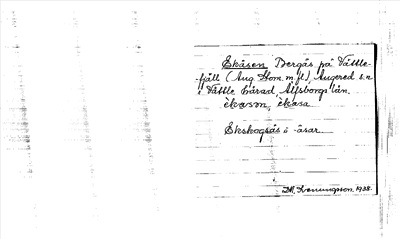 Ekåsen Bergås på Vättle-
fjäll (Aug. Hom. m fl) Angered s:n
i Vättle härad, Älfsborgs län.
ekåsom, ekåsa
Ekskogsås l. -åsar.
1938.